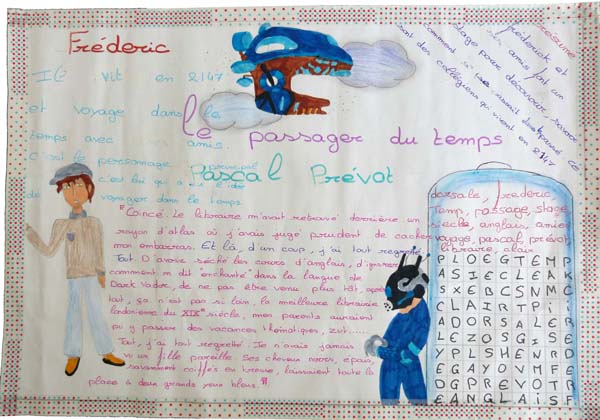 Fréderic
Il vit en 2147
et voyage dans le
temps avec amis
C'est le personnage principal
c'est lui qui a l'idée
voyager dans le temps
Résumé
Fréderick et
amis font un
stage pour découvrir savoir
comment
sont des collégiens qui vivent en 2147
le passager du temps
Pascal Prévot
"Coincé. Le libraire m'avait retrouvé derrière un
rayon d'atlas où j'avais jugé prudent de cacher
mon embarras. Et là, d'un coup, j'ai tout regretté.
Tout. D'avoir séché les cours d'anglais, d'ignorer
comment on dit "enchanté" dans la langue de
Dark Vador, de ne pas être venu plus tôt, après
tout, ça n'est pas si loin, la meilleure librairie
londonienne du XIXe siècle, mes parents auraient
pu y passer des vacances thématiques, zut.....
Tout, j'ai tout regretté. Je n'avais jamais
vu un fille pareille. Ses cheveux noirs, épais,
savamment coiffés en tresse, laissaient toute la
place à deux grands yeux bleus. "
darsale, frederic,
temp, passage, stage
siècle, anglais, amies
voyage, pascal, prévot,
libraire, alair
PLOEGTEMP
ASIECLEAK
SXEBCSNMC
CLAIRTPII
ADORSALER
LEZOSGISE
YPLSHENRD
EGAYOVMFE
DGPREVOTR
ENALAISF